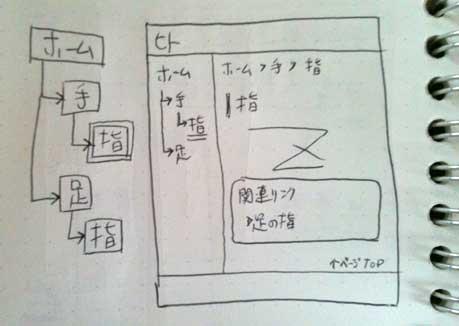 ホーム
手
指
足
指
ヒト
ホーム
手
指
足
ホーム > 手 > 指
指
関連リンク
足の指
↑ページTOP